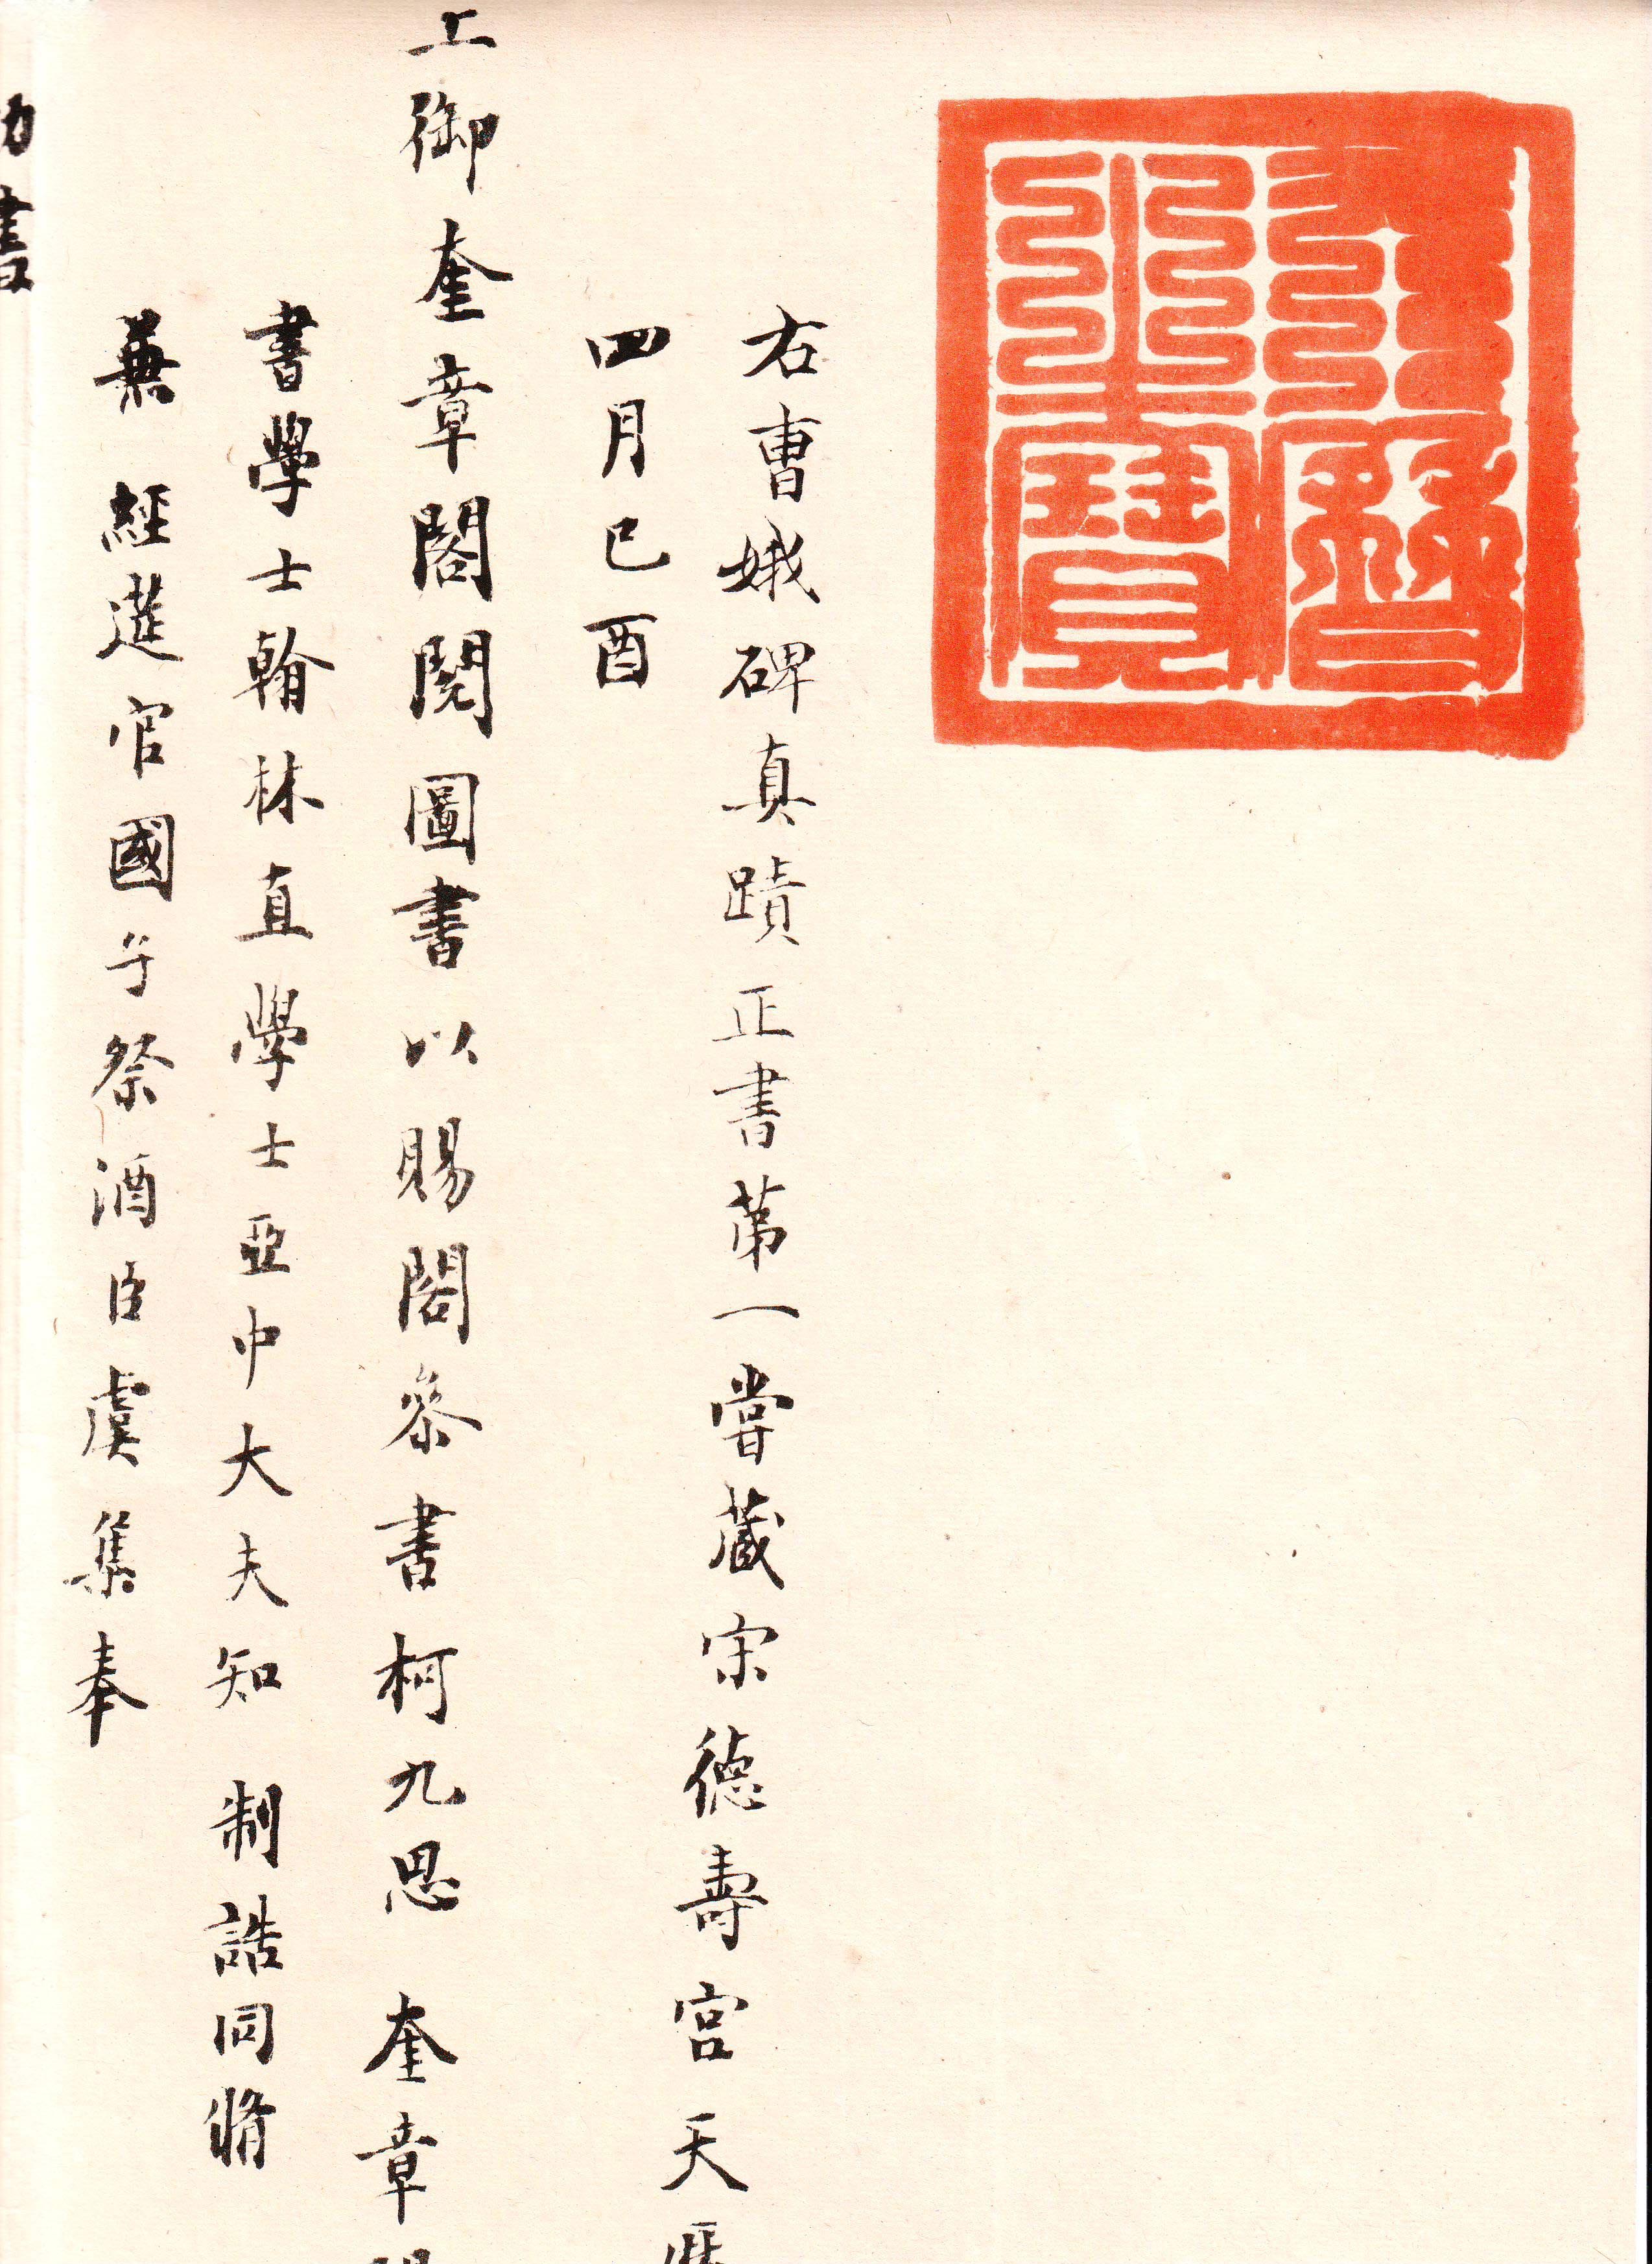 天曆之寶
右曹娥碑真蹟正書第一嘗藏宋德壽宮天
四月己酉
上御奎章閣閱圖書以賜閣參書柯九思 奎章
書學士翰林直學士亞中大夫知 制誥同脩
兼 經筵官國子祭酒臣虞集奉
書